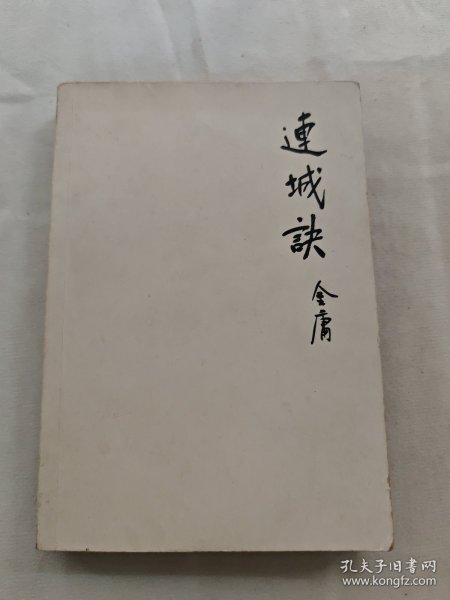 連城訣
金庸
孔夫子旧书网
www.kongfz.com